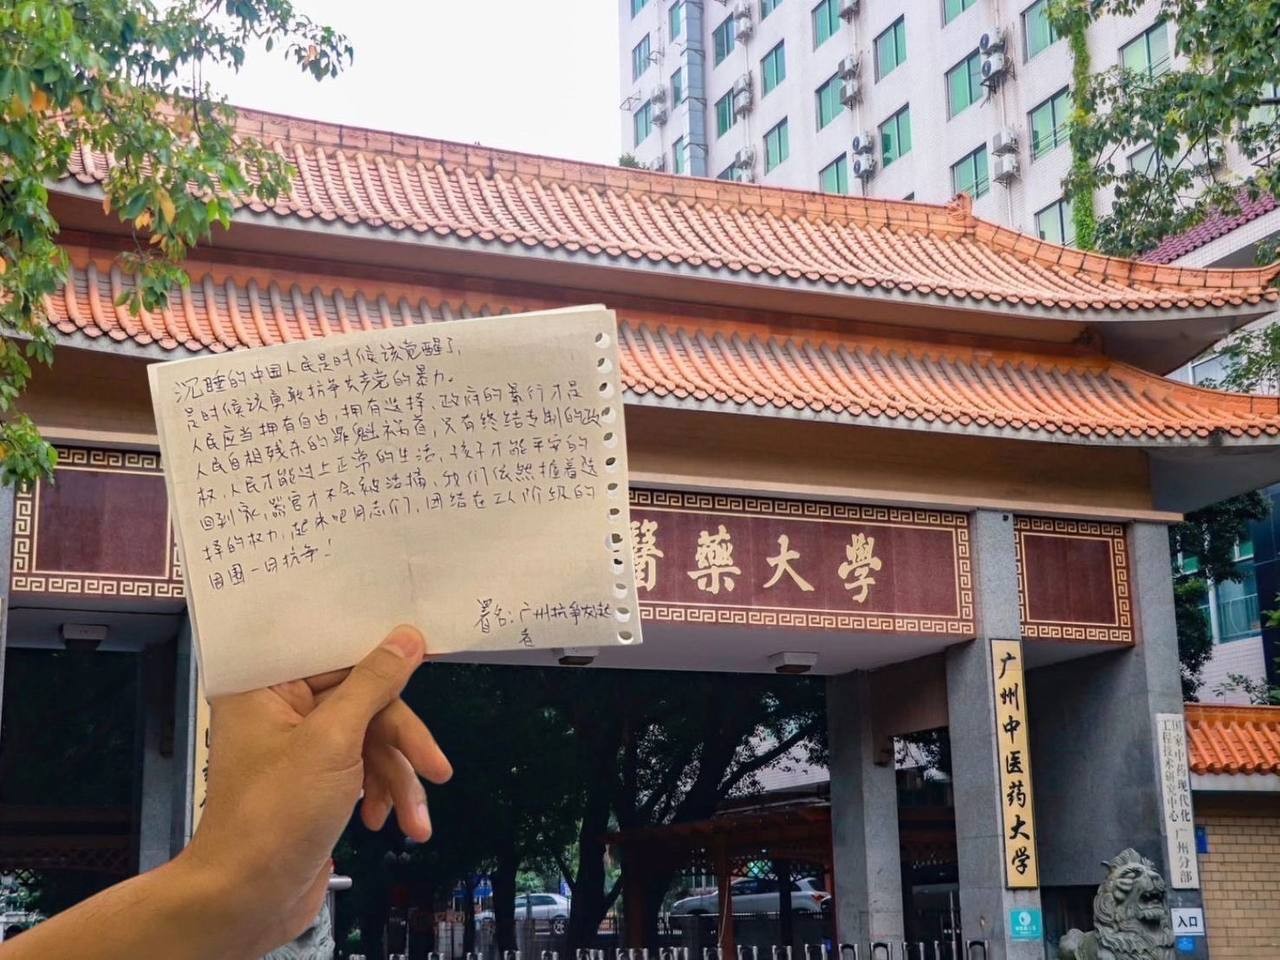 沉睡的中国人民是时候该觉醒了,
是时候该勇敢抗争共产党的暴力。
人民应当拥有自由,拥有选择,政府的暴行才是
人民自相残杀的罪魁祸首,只有终结专制的政
权,人民才能过上正常的生活,孩子才能平安的
回到家,器官才不会被活摘,我们依然握着选
择的权力,起来吧同志们,团结在工人阶级的
周围一同抗争!
署名:广州抗争发起
者
醫藥大學
广州中医药大学
国家中药现代化
工程技术研究中心
广州分部
入口